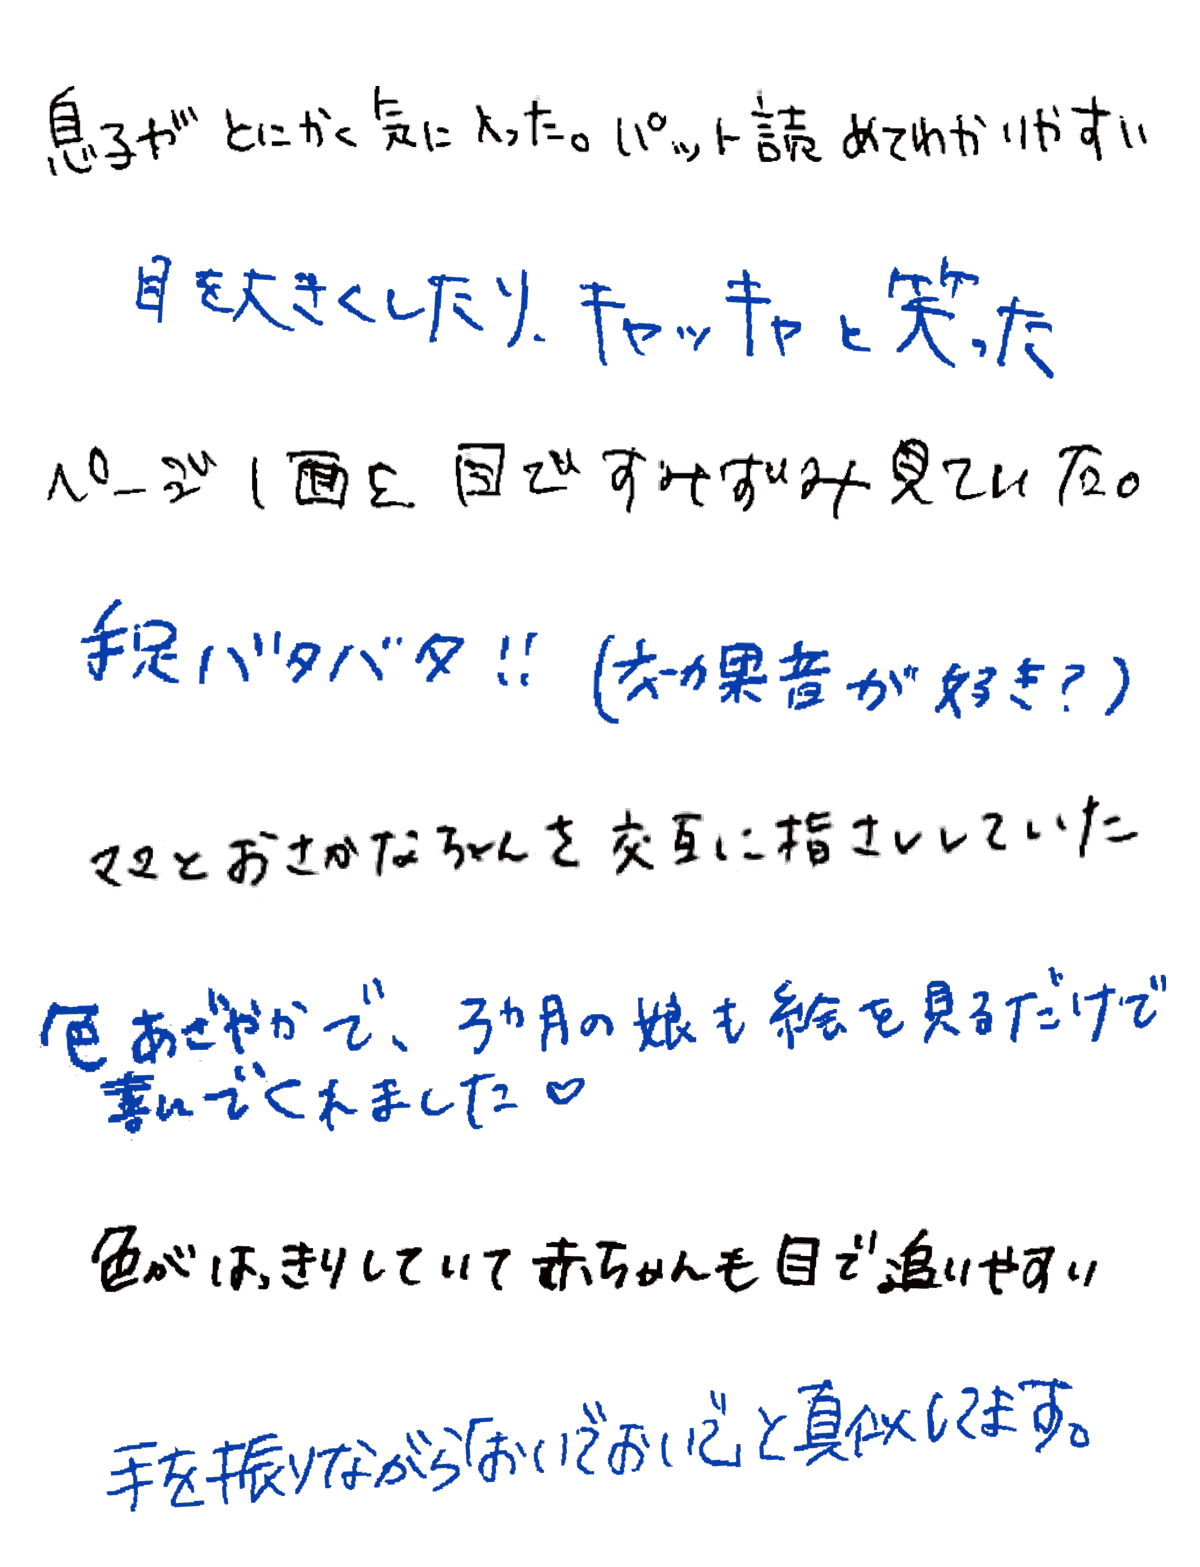 息子がとにかく気に入った。パット読めてわかりやすい
目を大きくしたり、キャッキャと笑った
ページ1画を目ですみずみみ見ていた。
手足バタバタ!!(効果音が好き?)
ママとおさかなちゃんを交互に指さししていた
色あざやかで、3カ月の娘も絵を見るだけで
喜いでくれました♡
色がはっきりしていて赤ちゃんも目で追いやすい
手を振りながら「おいでおいで」と真似してます。